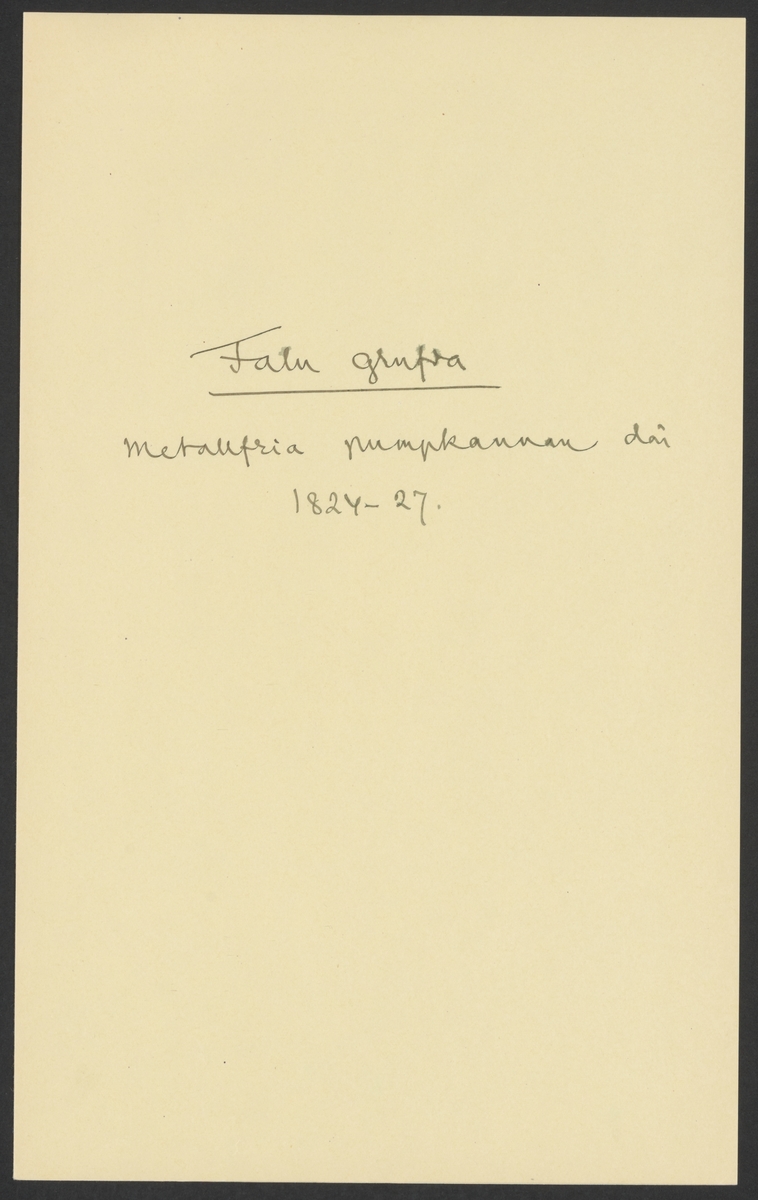 Falu grufva
Metallfria pumpkannan där
1824-27.